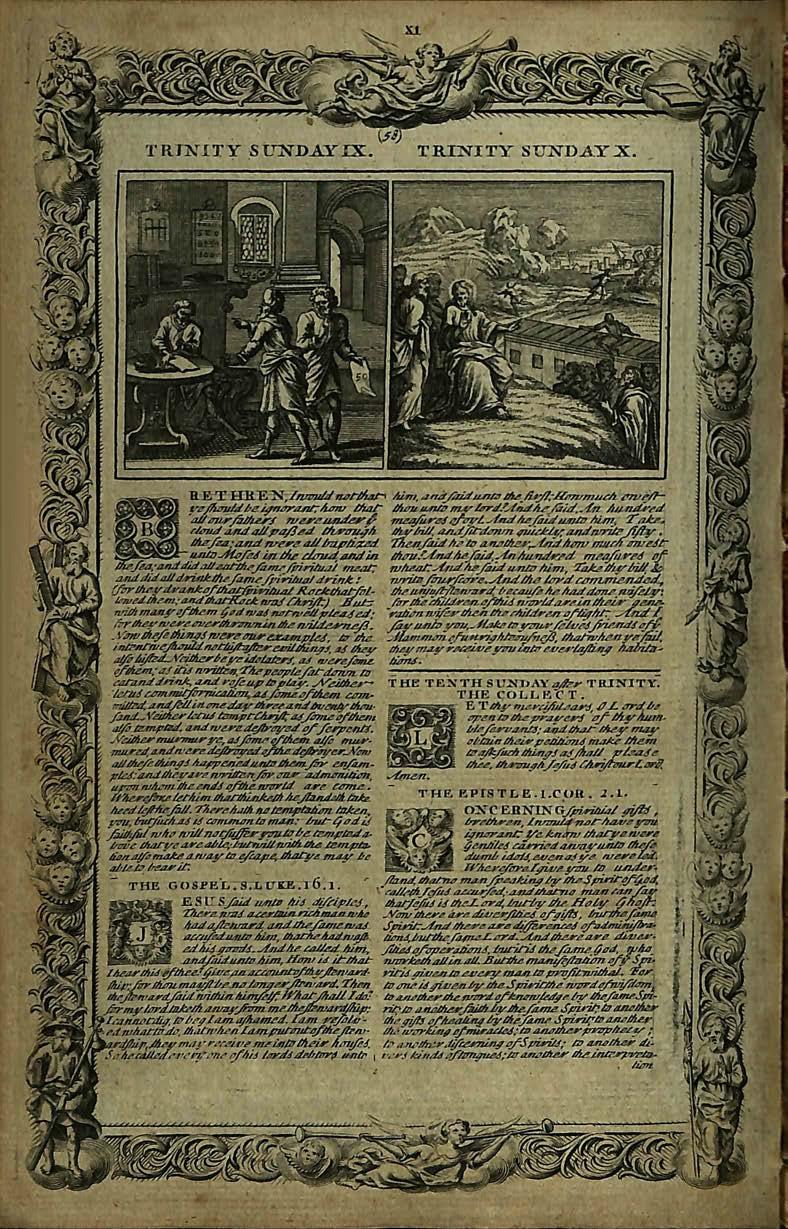 XI
(58)
TRINITY SUNDAY IX.
TRINITY SUNDAY X.
50
BRETHREN, I would not that
ye should be ignorant, how that
all our fathers were under yͤ
cloud and all paſſed through
the ſea; and were all baptized
unto Moſes in the cloud, and in
the ſea; and did all eat the ſame ſpiritual meat,
and did all drink the ſame ſpiritual drink:
(for they drank of that ſpiritual Rock that fol-
lowed them; and that Rock was Chriſt.) But
with many of them God was not well pleaſed:
for they were overthrown in the wilderneſs.
Now theſe things were our examples, to the
intent we ſhould not luſt after evil things, as they
alſo luſted. Neither be ye idolaters, as were ſome
of them; as it is written, The people ſat down to
eat and drink, and roſe up to play. Neither
let us commit fornication, as ſome of them com-
mitted, and fell in one day three and twenty thou-
ſand. Neither let us tempt Chriſt, as ſome of them
alſo tempted, and were deſtroyed of ſerpents.
Neither murmur ye, as ſome of them alſo mur-
mured, and were deſtroyed of the deſtroyer. Now
all theſe things happened unto them for enſam-
ples: and they are written for our admonition,
upon whom the ends of the world are come.
Wherefore let him that thinketh he ſtandeth take
heed leſt he fall. There hath no temptation taken
you, but ſuch as is common to man: but God is
faithful who will not ſuffer you to be tempted a-
bove that ye are able; but will with the tempta-
tion alſo make a way to eſcape, that ye may be
able to bear it.
THE GOSPEL. S. LUKE. 16. 1.
JESUS ſaid unto his diſciples,
There was a certain rich man who
had a ſteward, and the ſame was
accuſed unto him, that he had waſt-
ed his goods. And he called him,
and ſaid unto him, How is it that
I hear this of thee? Give an account of thy ſteward-
ſhip: for thou mayſt be no longer ſteward. Then
the ſteward ſaid within himſelf, What ſhall I do?
for my lord taketh away from me the ſtewardſhip:
I cannot dig, to beg I am aſhamed. I am reſolv-
ed what to do, that when I am put out of the ſtew-
ardſhip, they may receive me into their houſes.
So he called every one of his lords debtors unto
him, and ſaid unto the firſt, How much oweſt
thou unto my lord? And he ſaid, An hundred
meaſures of oyl. And he ſaid unto him, Take
thy bill, and ſit down quickly, and write fifty.
Then ſaid he to another, And how much oweſt
thou? And he ſaid, An hundred meaſures of
wheat. And he ſaid unto him, Take thy bill &
write fourſcore. And the lord commended,
the unjuſt ſteward, becauſe he had done wiſely:
for the children of this world are in their gene-
ration wiſer then the children of light. And I
ſay unto you, Make to your ſelves friends of yͤ
Mammon of unrighteouſneſs, that when ye fail,
they may receive you into everlaſting habita-
tions.
THE TENTH SUNDAY after TRINITY.
THE COLLECT.
LET thy merciful ears, O Lord, be
open to the prayers of thy hum-
ble ſervants; and that they may
obtain their petitions make them
to aſk ſuch things as ſhall pleaſe
thee, through Jeſus Chriſt our Lord.
Amen.
THE EPISTLE. I. COR. 2. 1.
CONCERNING ſpiritual gifts,
brethren, I would not have you
ignorant. Ye know that ye were
Gentiles carried away unto theſe
dumb idols, even as ye were led.
Wherefore I give you to under-
ſtand, that no man ſpeaking by the Spirit of God,
calleth Jeſus accurſed; and that no man can ſay
that Jeſus is the Lord, but by the Holy Ghoſt.
Now there are diverſities of gifts, but the ſame
Spirit. And there are differences of adminiſtra-
tions, but the ſame Lord. And there are diver-
ſities of operations, but it is the ſame God, who
worketh all in all. But the manifeſtation of yͤ Spi-
rit is given to every man to profit withal. For
to one is given by the Spirit the word of wiſdom,
to another the word of knowledge by the ſame Spi-
rit; to another faith by the ſame Spirit; to another
the gifts of healing by the ſame Spirit; to another
the working of miracles; to another prophecy;
to another diſcerning of Spirits; to another di-
vers kinds of tongues; to another the interpreta-
tion